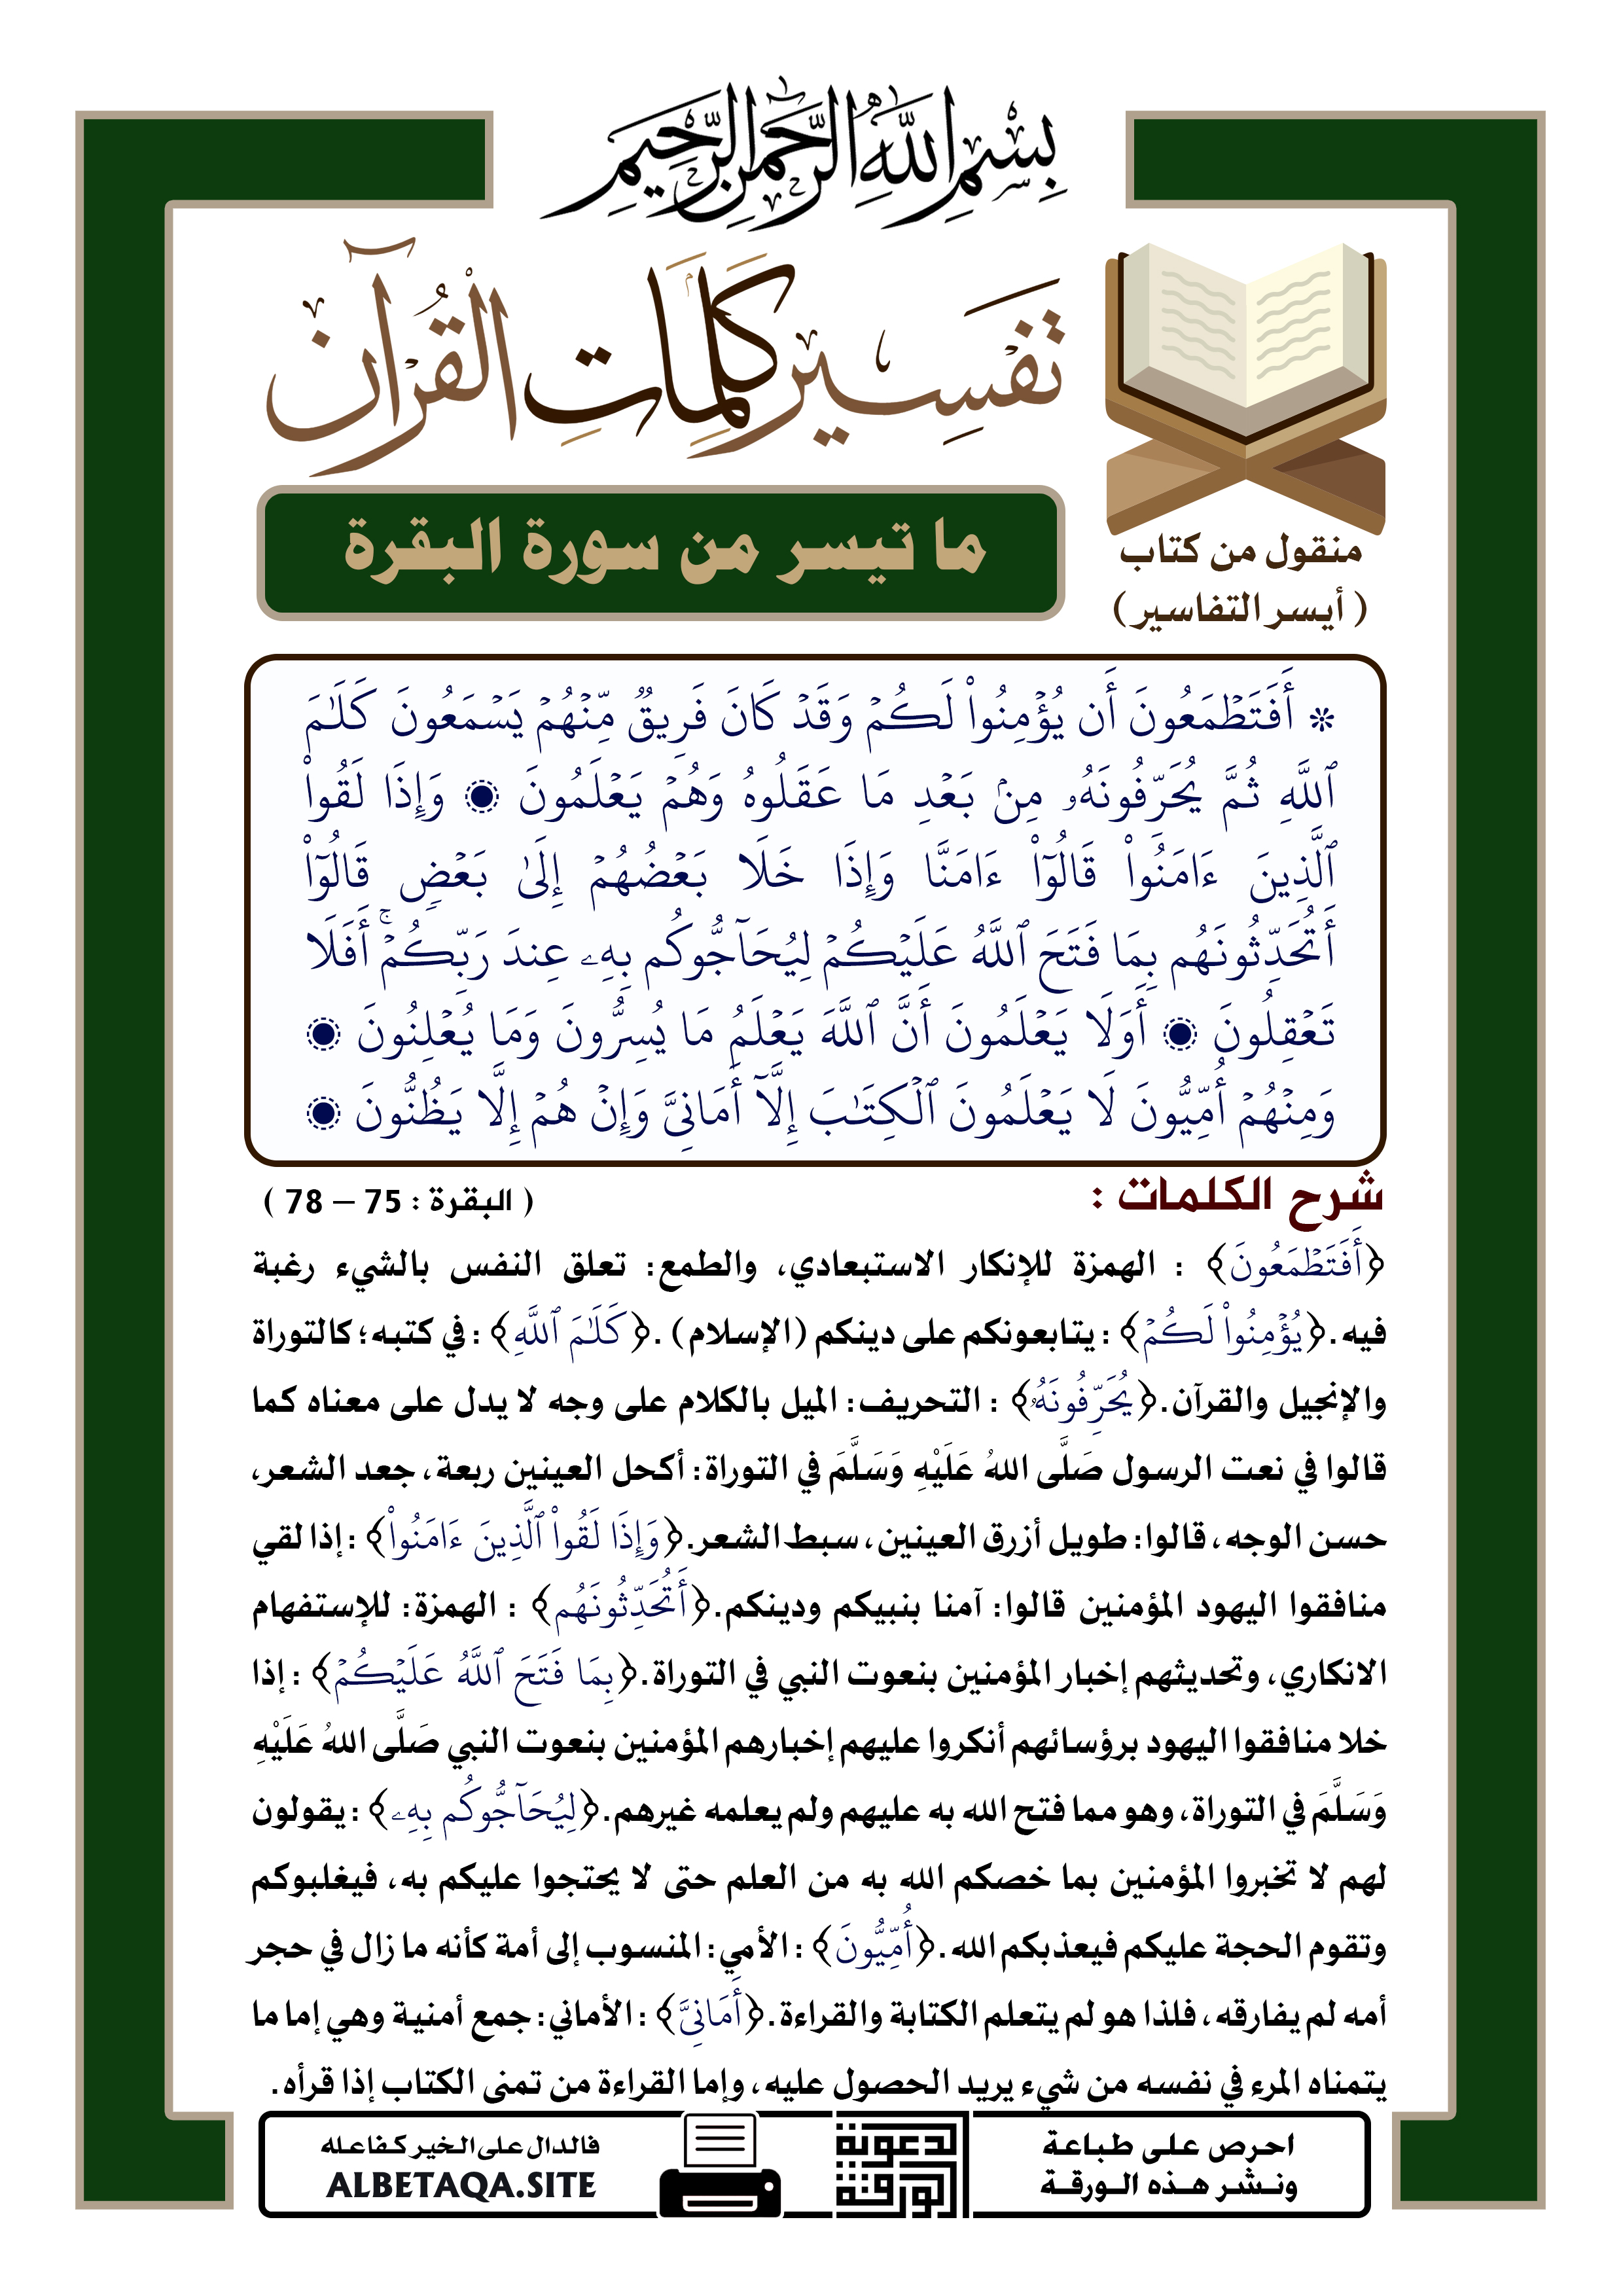 بِسْمِ اللَّهِ الرَّحْمَٰنِ الرَّحِيمِ
تَفْسِير كَلِمَاتِ القُرْآن
ما تيسر من سورة البقرة
منقول من كتاب
( أيسر التفاسير )
۞ أَفَتَطۡمَعُونَ أَن يُؤۡمِنُواْ لَكُمۡ وَقَدۡ كَانَ فَرِيقٞ مِّنۡهُمۡ يَسۡمَعُونَ كَلَٰمَ
ٱللَّهِ ثُمَّ يُحَرِّفُونَهُۥ مِنۢ بَعۡدِ مَا عَقَلُوهُ وَهُمۡ يَعۡلَمُونَ ۝ وَإِذَا لَقُواْ
ٱلَّذِينَ ءَامَنُواْ قَالُوٓاْ ءَامَنَّا وَإِذَا خَلَا بَعۡضُهُمۡ إِلَىٰ بَعۡضٖ قَالُوٓاْ
أَتُحَدِّثُونَهُم بِمَا فَتَحَ ٱللَّهُ عَلَيۡكُمۡ لِيُحَآجُّوكُم بِهِۦ عِندَ رَبِّكُمۡۚ أَفَلَا
تَعۡقِلُونَ ۝ أَوَلَا يَعۡلَمُونَ أَنَّ ٱللَّهَ يَعۡلَمُ مَا يُسِرُّونَ وَمَا يُعۡلِنُونَ ۝
وَمِنۡهُمۡ أُمِّيُّونَ لَا يَعۡلَمُونَ ٱلۡكِتَٰبَ إِلَّآ أَمَانِيَّ وَإِنۡ هُمۡ إِلَّا يَظُنُّونَ ۝
شرح الكلمات :
( البقرة : 75 – 78 )
﴿أَفَتَطۡمَعُونَ﴾ : الهمزة للإنكار الاستبعادي، والطمع: تعلق النفس بالشيء رغبة
فيه.﴿يُؤۡمِنُواْ لَكُمۡ﴾: يتابعونكم على دينكم (الإسلام) .﴿كَلَٰمَ ٱللَّهِ﴾: في كتبه؛ كالتوراة
والإنجيل والقرآن.﴿يُحَرِّفُونَهُۥ﴾ : التحريف: الميل بالكلام على وجه لا يدل على معناه كما
قالوا في نعت الرسول صَلَّى اللهُ عَلَيْهِ وَسَلَّمَ في التوراة: أكحل العينين ربعة، جعد الشعر،
حسن الوجه، قالوا: طويل أزرق العينين، سبط الشعر.﴿وَإِذَا لَقُواْ ٱلَّذِينَ ءَامَنُواْ﴾: إذا لقي
منافقوا اليهود المؤمنين قالوا: آمنا بنبيكم ودينكم.﴿أَتُحَدِّثُونَهُم﴾ : الهمزة: للإستفهام
الانكاري، وتحديثهم إخبار المؤمنين بنعوت النبي في التوراة.﴿بِمَا فَتَحَ ٱللَّهُ عَلَيۡكُمۡ﴾ : إذا
خلا منافقوا اليهود برؤسائهم أنكروا عليهم إخبارهم المؤمنين بنعوت النبي صَلَّى اللهُ عَلَيْهِ
وَسَلَّمَ في التوراة، وهو مما فتح الله به عليهم ولم يعلمه غيرهم.﴿لِيُحَآجُّوكُم بِهِۦ﴾: يقولون
لهم لا تخبروا المؤمنين بما خصكم الله به من العلم حتى لا يحتجوا عليكم به، فيغلبوكم
وتقوم الحجة عليكم فيعذبكم الله.﴿أُمِّيُّونَ﴾: الأمي: المنسوب إلى أمة كأنه ما زال في حجر
أمه لم يفارقه، فلذا هو لم يتعلم الكتابة والقراءة.﴿أَمَانِيَّ﴾: الأماني: جمع أمنية وهي إما ما
يتمناه المرء في نفسه من شيء يريد الحصول عليه، وإما القراءة من تمنى الكتاب إذا قرأه.
احرص على طباعة
ونشر هذه الورقة
فالدال على الخير كفاعله
ALBETAQA.SITE